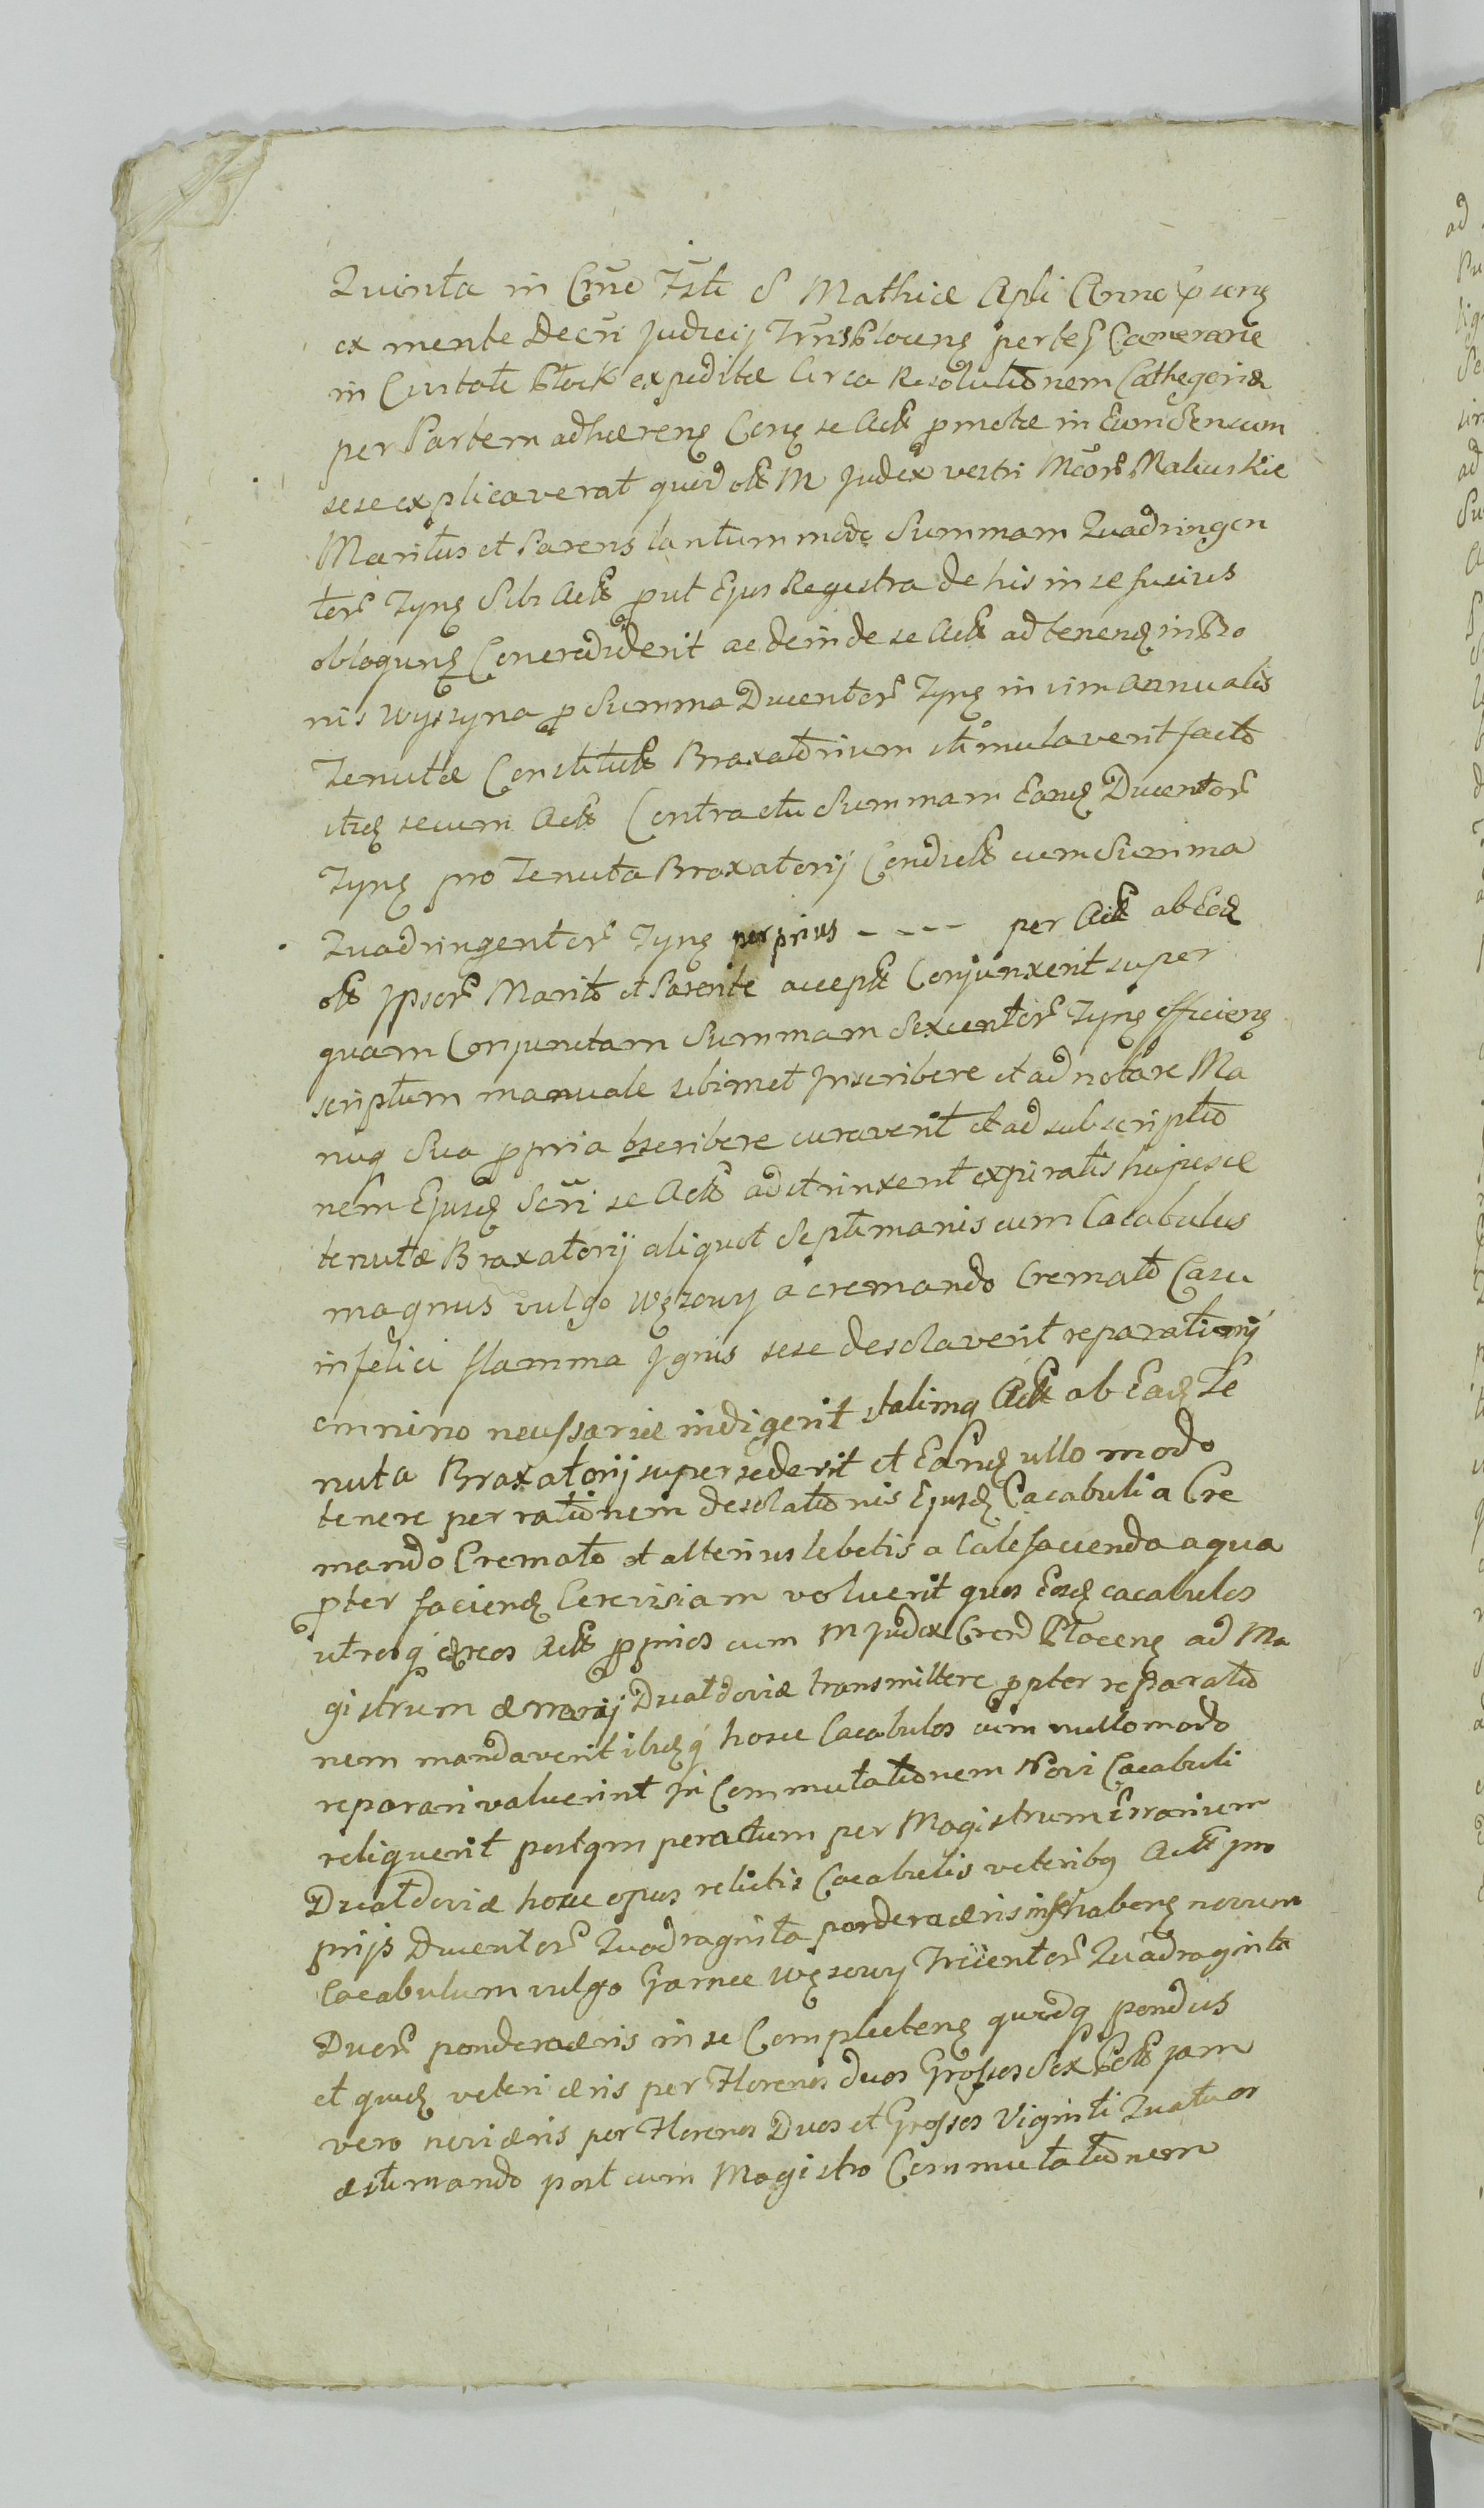 Quinta in Cr̃no Fsti S Mathiæ Apli Anno p̃senȝ
ex mente Decr̃i Judicij Tr̃ris Plocenȝ per teȝ Camerarie
in Civitate Płock expeditæ Circa Resolutionem Cathegoriæ
per Partem adhærenȝ Conȝ se Actt promotæ in Eum Sensum
sese explicaverat quid ott M Judex vestri Mcor̃ Maliuskie
Maritus et Parens tantummodo Summam Quadringen
tor̃ Tynȝ Sibi Actt prout Ejus Regestra de his in se fusius
obloqunȝ Concrediderit ac deinde se Actt ad tenenȝ in Bo
nis Wyszyna pro Summa Ducentor̃ Tynȝ in vim annualis
Tenutæ Constitutt Braxatorium stimulaverit facto
itȝ secum Actt Contractu Summam Eanȝ Ducentor̃
Tynȝ pro Tenuta Braxatorij Condictt cum Summa
Quadringentor̃ Tynȝ per prius - - - - per Actt ab Eoȝ
ott Ipsor̃ Marito et Parente acceptt Conjunxerit super
quam Conjunctam Summam Sexcentor̃ Tynȝ efficienȝ
scriptum manuale sibimet Inscribere et adnotare Ma
nuq Sua propria bscribere curaverit et ad subscriptio
nem Ejusȝ Scr̃i se Actt adstrinxerit expiratis hujusce
tenutæ Braxatorij aliquot Septimanis cum Cacabulus
magnus vulgo Wężowy a cremando Cremato Casu
infelici flamma Ignis sese desolaverit reparationij
omnino necessariæ indigerit statimq Actt ab Eaȝ Te
nuta Braxatorij supersederit et Eanȝ ullo modo
tenere per rationem desolationis Ejusȝ Cacabuli a Cre
mando Cremato et alterius lebetis a Calefacienda aqua
propter facienȝ Cerevisiam voluerit quos Eosȝ cacabulos
utrosq æreos Actt proprios cum M Judex Crend Płocenȝ ad Ma
gistrum ærrarij Dratdoviæ transmittere propter reparatio
nem mandaverit ibȝq hosce Cacabulos cum nullo modo
reparari valuerint in Commutationem Novi Cacabuli
reliquerit postqm peractum per Magistrum Erarium
Dratdoviæ hosce opus relictis Cacabulis veteribq Actt pro
prijs Ducentor̃ Quadraginta pondera æris in se habenȝ novum
Cacabulum vulgo Garnec Wężowy Tricentor̃ Quadraginta
Duor̃ pondera æris in se Complectenȝ quodq pondus
et quiȝ veteri æris per Florenos duos Grossos Sex Poll jam
vero novi æris per Florenos Duos et Grossos Viginti Quatuor
æstimando post cum Magistro Commutationem